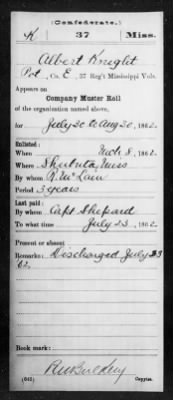 (Confederate.)
K 37 Miss.
Albert Knight
Pvt, Co. E, 37 Reg't Mississippi Vols.
Appears on
Company Muster Roll
of the organization named above,
for July 20 to Aug 30, 1862.
Enlisted:
When Mch 8, 1862.
Where Shubuta, Miss
By whom R. McLain
Period 3 years
Last paid:
By whom Capt Shepard
To what time July 23, 1862.
Present or absent
Remarks: Discharged July 23
62.
Book mark:
(642) Copyist.